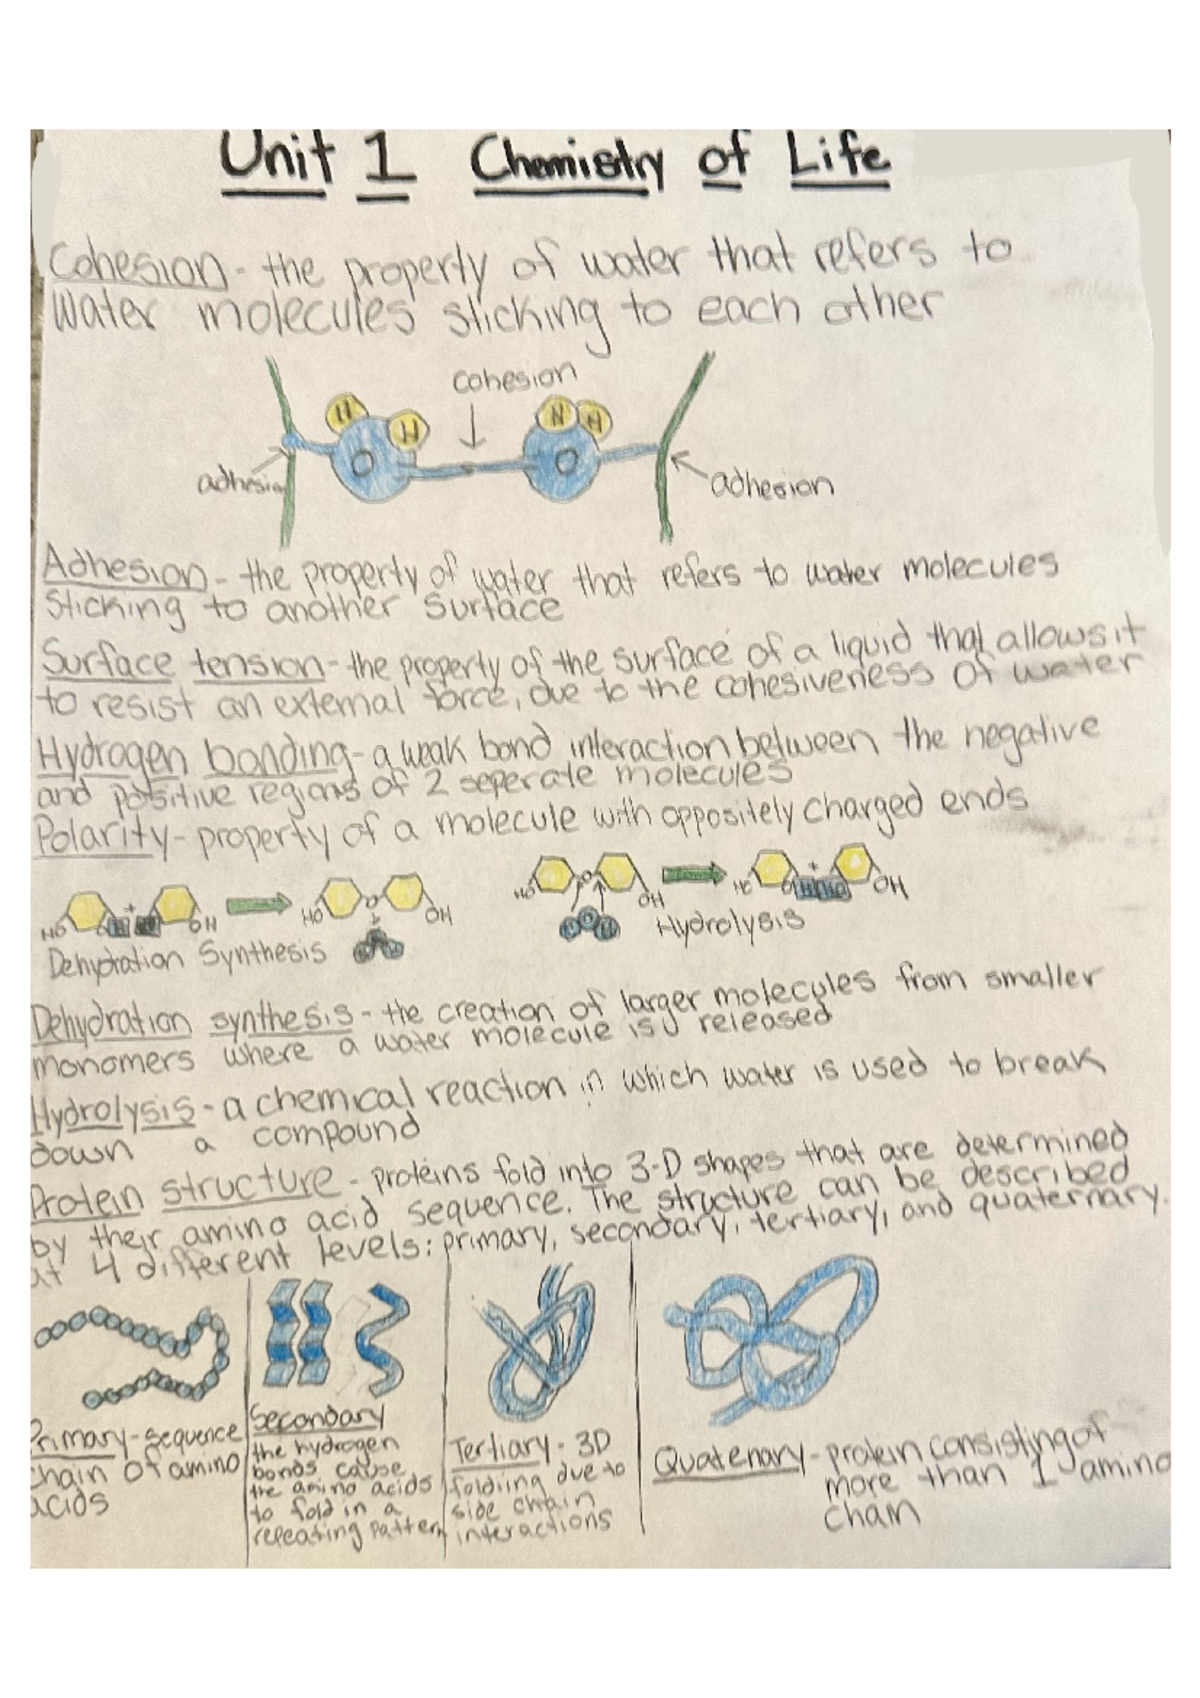 Unit 1 Chemistry of Life
Cohesion - the property of water that refers to
water molecules sticking to each other
cohesion
H H N H
O O
adhesion
adhesion
Adhesion - the property of water that refers to water molecules
sticking to another surface
Surface tension - the property of the surface of a liquid that allows it
to resist an external force, due to the cohesiveness of water
Hydrogen bonding - a weak bond interaction between the negative
and positive regions of 2 seperate molecules
Polarity - property of a molecule with oppositely charged ends
HO + OH HO O OH
Dehydration Synthesis
HO O OH HO + OH
Hydrolysis
Dehydration synthesis - the creation of larger molecules from smaller
monomers where a water molecule is released
Hydrolysis - a chemical reaction in which water is used to break
down a compound
Protein structure - proteins fold into 3-D shapes that are determined
by their amino acid sequence. The structure can be described
at 4 different levels: primary, secondary, tertiary, and quaternary.
Primary - sequence
chain of amino
acids
Secondary
the hydrogen
bonds cause
the amino acids
to fold in a
repeating pattern
Tertiary - 3D
foldiing due to
side chain
interactions
Quatenary - protein consisting of
more than 1 amino
chain